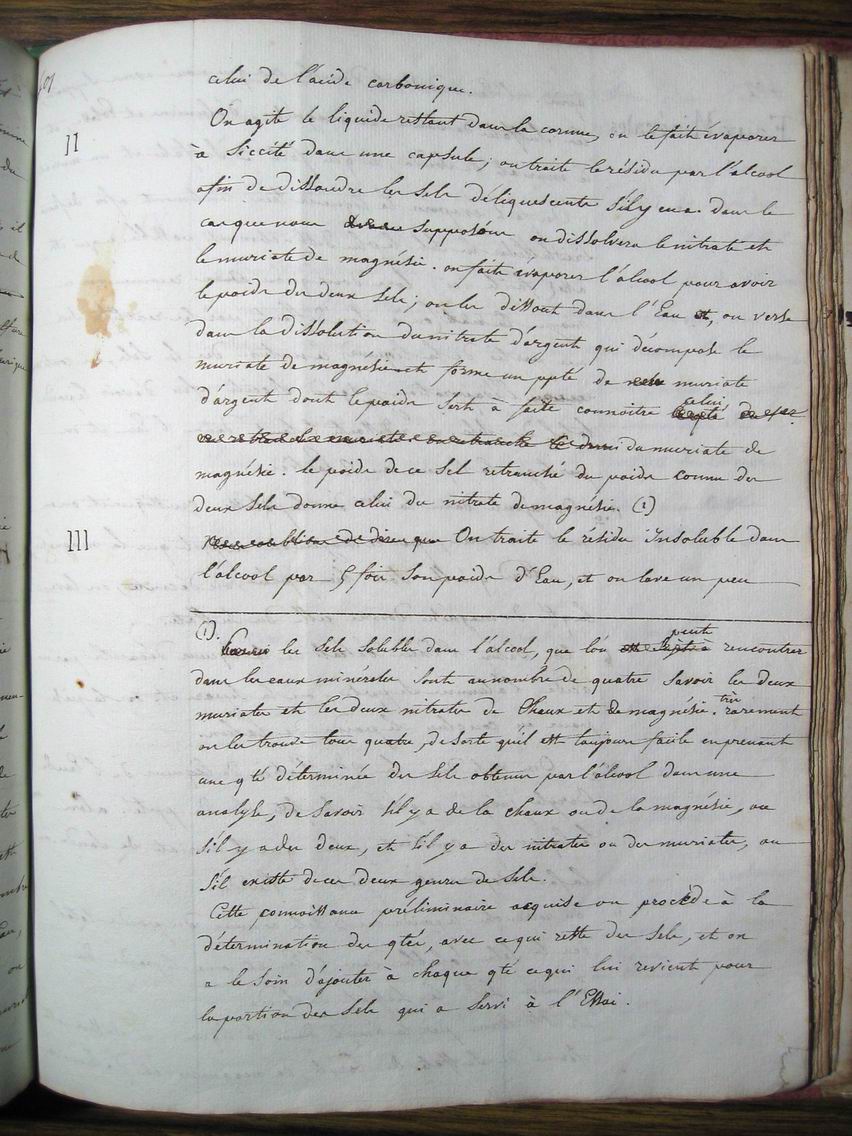 celui de l'acide carbonique.
II
On agite le liquide restant dans la cornue, on le fait évaporer
à siccité dans une capsule; on traite le résidu par l'alcool
afin de dissoudre les sels déliquescents s'il y en a. dans le
cas que nous supposons on dissolvera le nitrate et
le muriate de magnésie. on fait evaporer l'alcool pour avoir
le poids des deux sels; on les dissout dans l'Eau, on verse
dans la dissolution du nitrate d'argent qui décompose le
muriate de magnésie et forme un ppté de muriate
d'argent dont le poids sert à faire connoitre celui
du muriate de
magnésie. le poids de ce sel retranché du poids connu des
deux sels donne celui du nitrate de magnésie. (1)
III
On traite le résidu insoluble dans
l'alcool par 5 fois son poids d'Eau, et on lave un peu
(1). les sels solubles dans l'alcool, que l'on peut rencontrer
dans les eaux minérales sont au nombre de quatre savoir les deux
muriates et les deux nitrates de Chaux et de magnésie. très rarement
on les trouve tous quatre, de sorte qu'il est toujours facile en prenant
une qté déterminée des sels obtenus par l'alcool dans une
analyse, de savoir s'il y a de la chaux ou de la magnésie, ou
s'il y a des deux, et s'il y a des nitrates ou des muriates, ou
s'il existe de ces deux genres de sels.
Cette connoissance préliminaire acquise on procède à la
détermination des qtés, avec ce qui reste des sels, et on
a le soin d'ajouter à chaque qté ce qui lui revient pour
la portion des sels qui a servi à l'Essai.